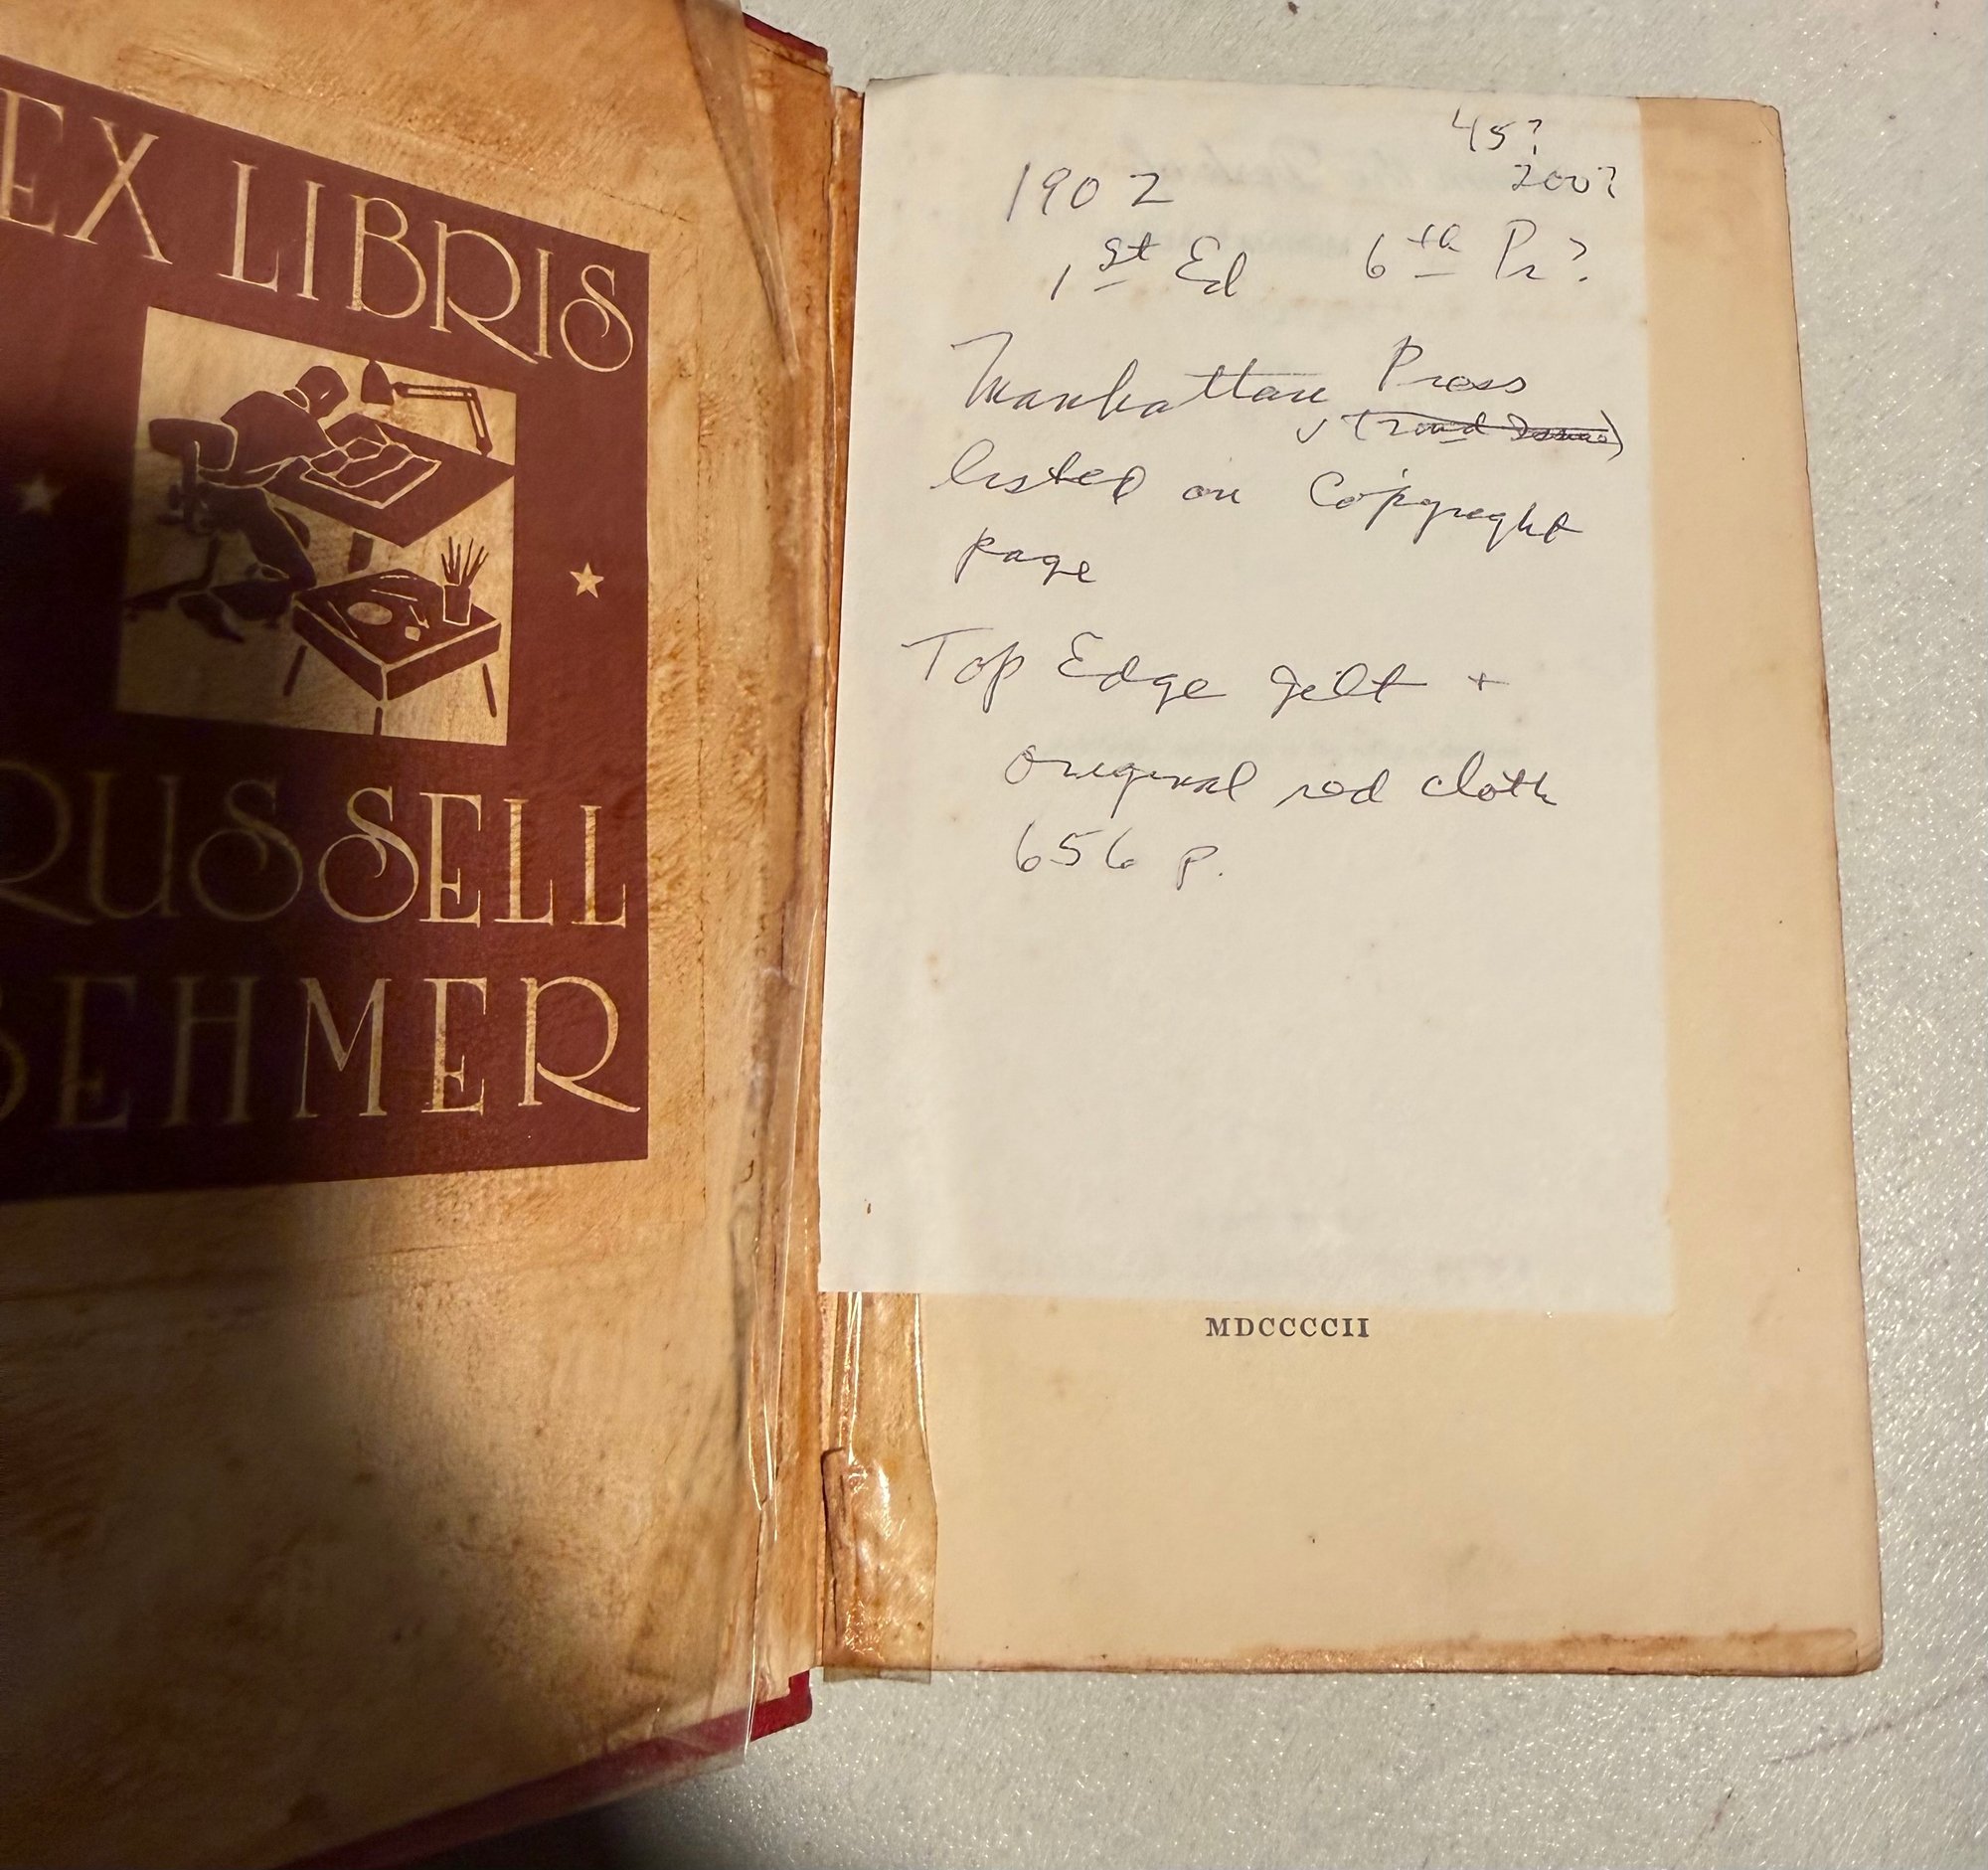 EX LIBRIS
RUSSELL
BEHMER
45?
200?
1902
1st Ed 6th Pr?
Manhattan Press
listed on Copyright
page
Top Edge gilt +
original red cloth
656 p.
MDCCCCII